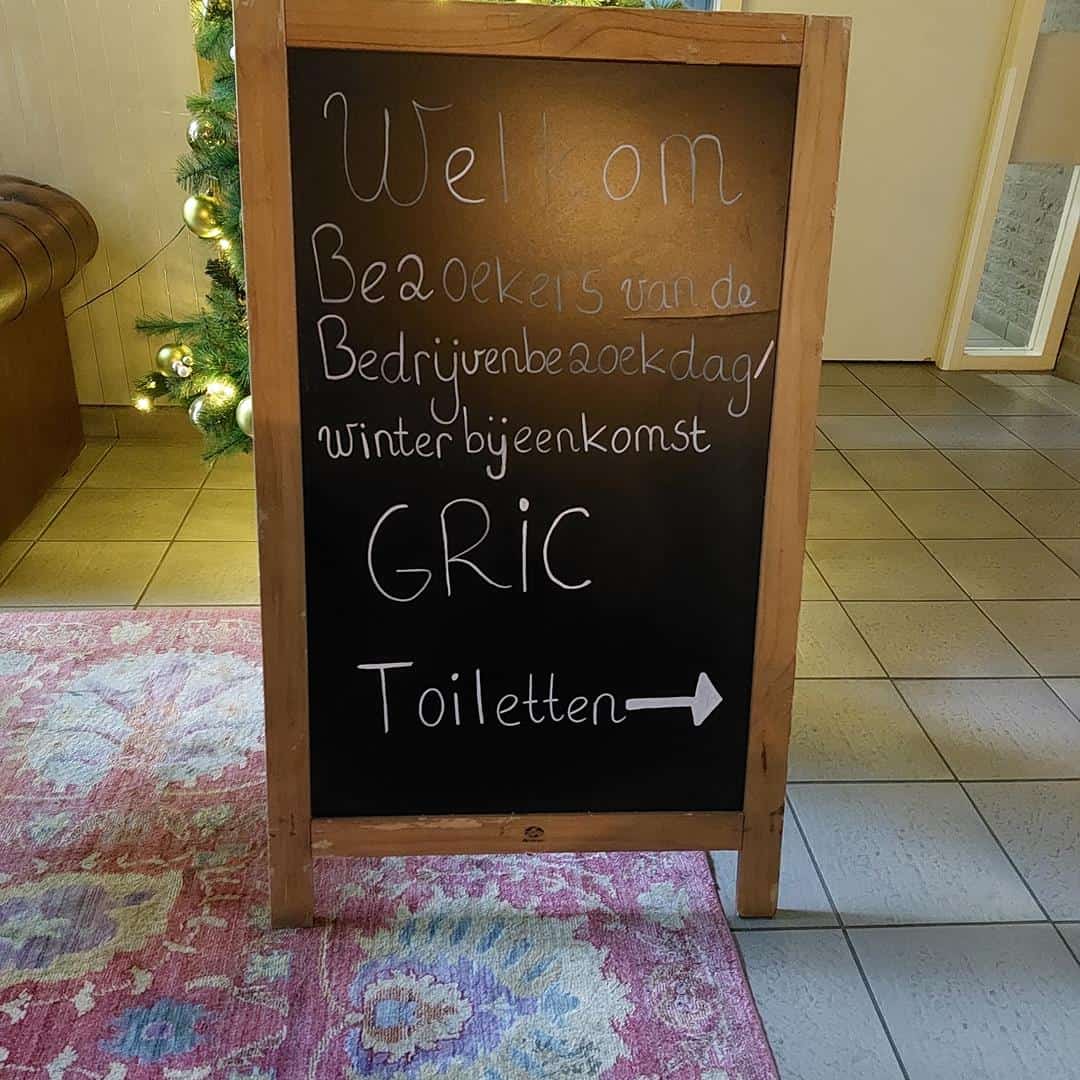 Welkom
Bezoekers van de
Bedrijvenbezoekdag/
winterbijeenkomst
GRiC
Toiletten →